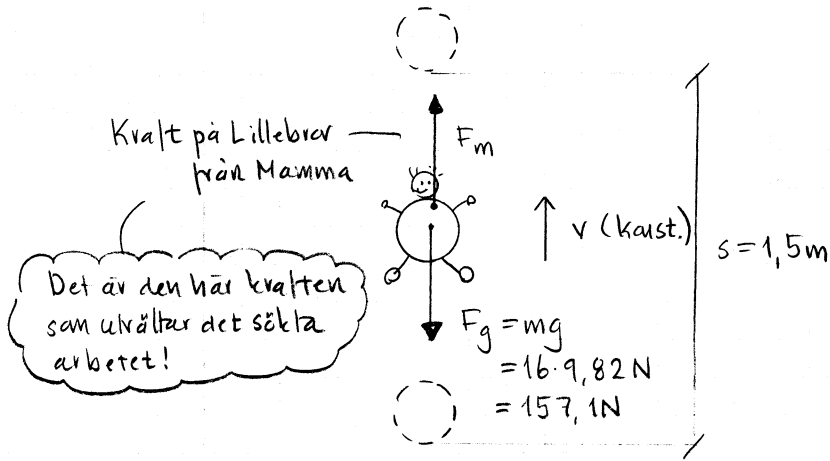 Kraft på Lillebror
från Mamma
F_m
v (konst.)
s = 1,5m
Det är den här kraften
som uträttar det sökta
arbetet!
F_g = mg
= 16·9,82N
= 157,1N